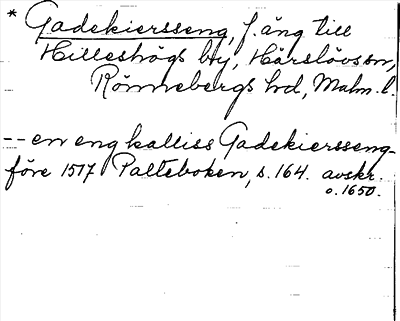 * Gadekiersseng, f. äng till
Hilleshögs by, Härslövs sn,
Rönnebergs hd, Malm. l.
-- en eng kalliss Gadekiersseng -
före 1517 Palteboken, s. 164. avskr.
o. 1650.